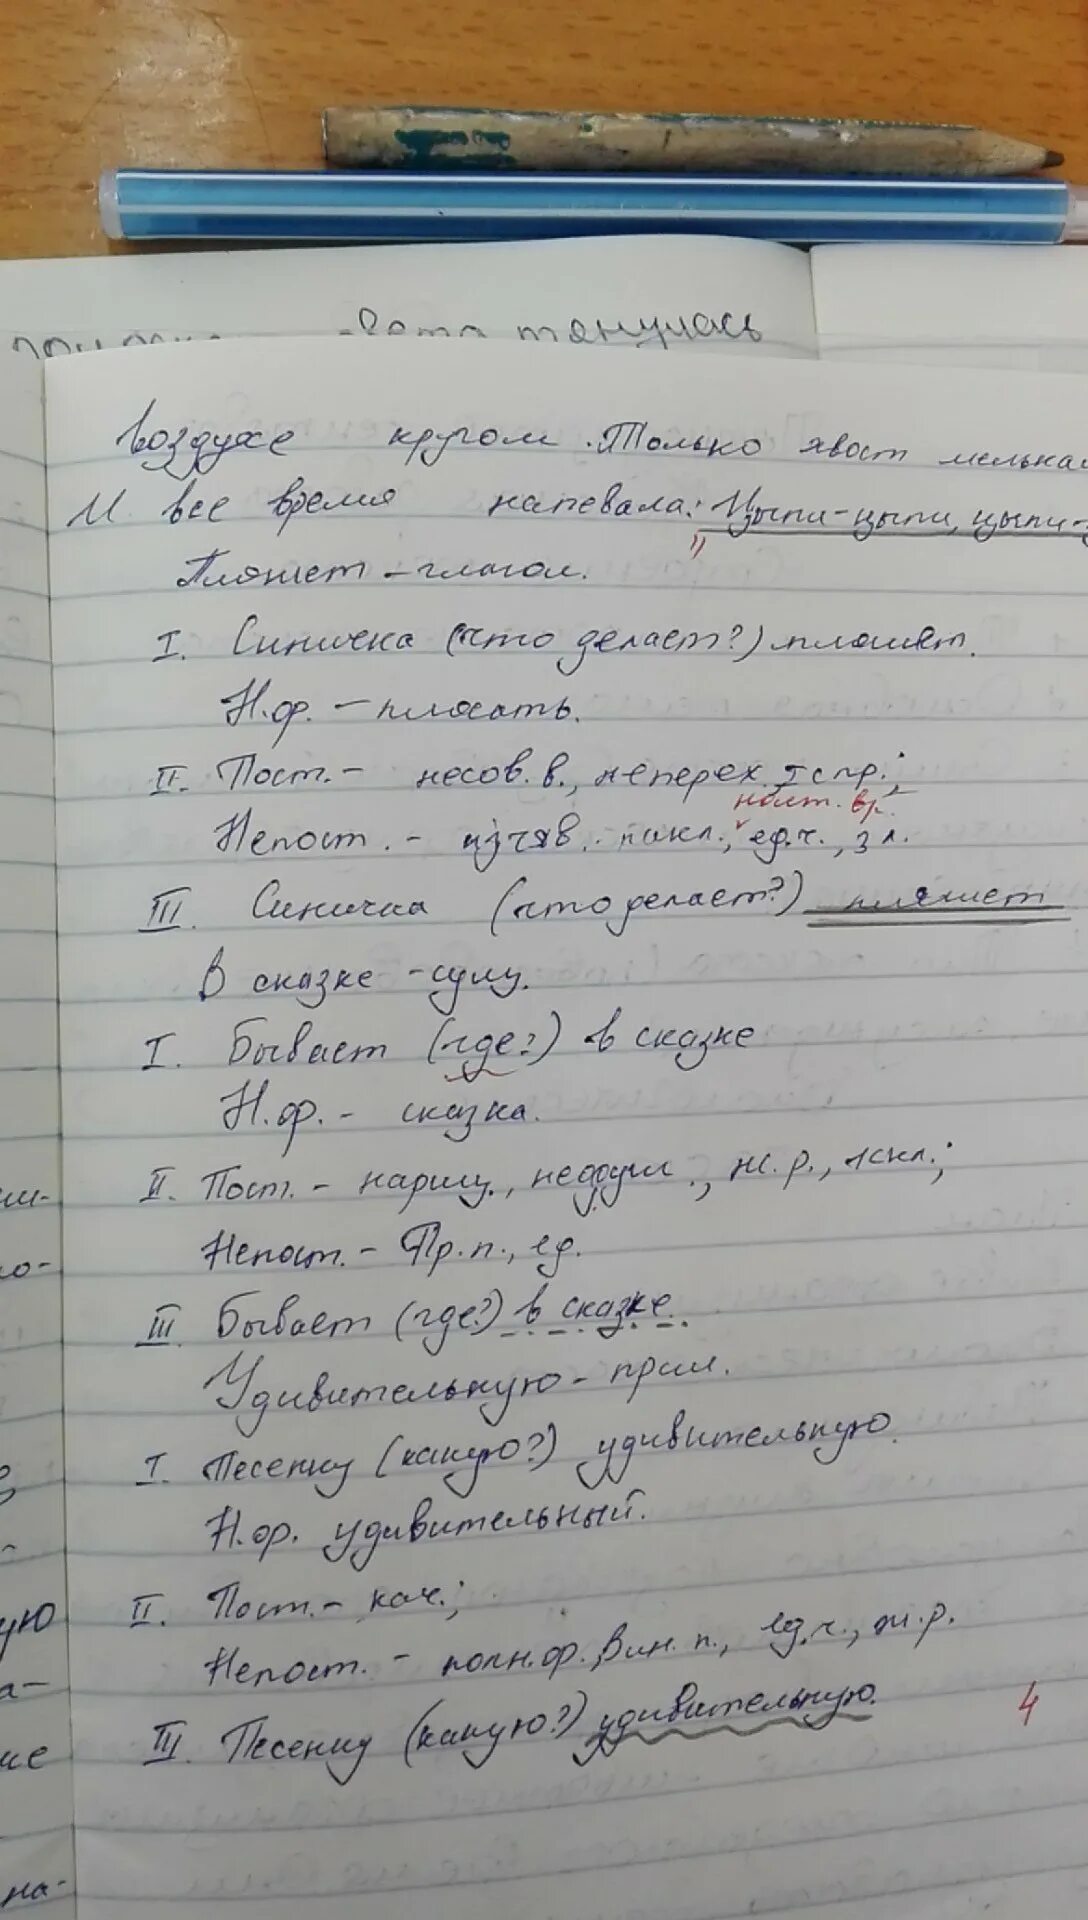 тянулась
воздухе кругом. Только хвост мелька
И все время напевала: Цыпи-цыпи, цыпи-
Пляшет - глагол.
I. Синичка (что делает?) пляшет.
Н.ф. - плясать.
II. Пост. - несов. в., неперех., I спр.;
наст. вр.
Непост. - изъяв. накл., ед.ч., 3 л.
III Синичка (что делает?) пляшет
В сказке - сущ.
I. Бывает (где?) в сказке
Н.ф. - сказка.
II. Пост. - нариц., неодуш., ж.р., 1 скл.;
Непост. - Пр.п., ед.
III Бывает (где?) в сказке.
Удивительную - прил.
I. Песенку (какую?) удивительную.
Н.ф. удивительный.
II. Пост. - кач.;
Непост. - полн.ф., Вин. п., ед.ч., ж.р.
III Песенку (какую?) удивительную.
4